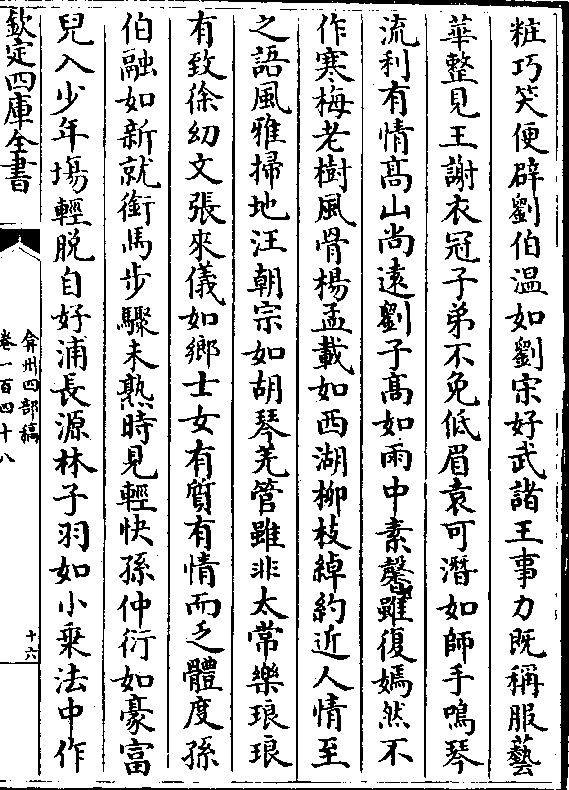 粧巧笑便辟劉伯温如劉宋好武諸王事力既稱服藝
華整見王謝衣冠子弟不免低眉袁可潛如師手鳴琴
流利有情髙山尚遠劉子髙如雨中素馨雖復嫣然不
作寒梅老樹風骨楊孟載如西湖柳枝綽約近人情至
之語風雅掃地汪朝宗如胡琴羌管雖非太常樂琅琅
有致徐幼文張來儀如鄉士女有質有情而乏體度孫
伯融如新就銜馬步驟未熟時見輕快孫仲衍如豪富
兒入少年場輕脱自好浦長源林子羽如小乗法中作
欽定四庫全書
弇州四部稿
卷一百四十八
十六